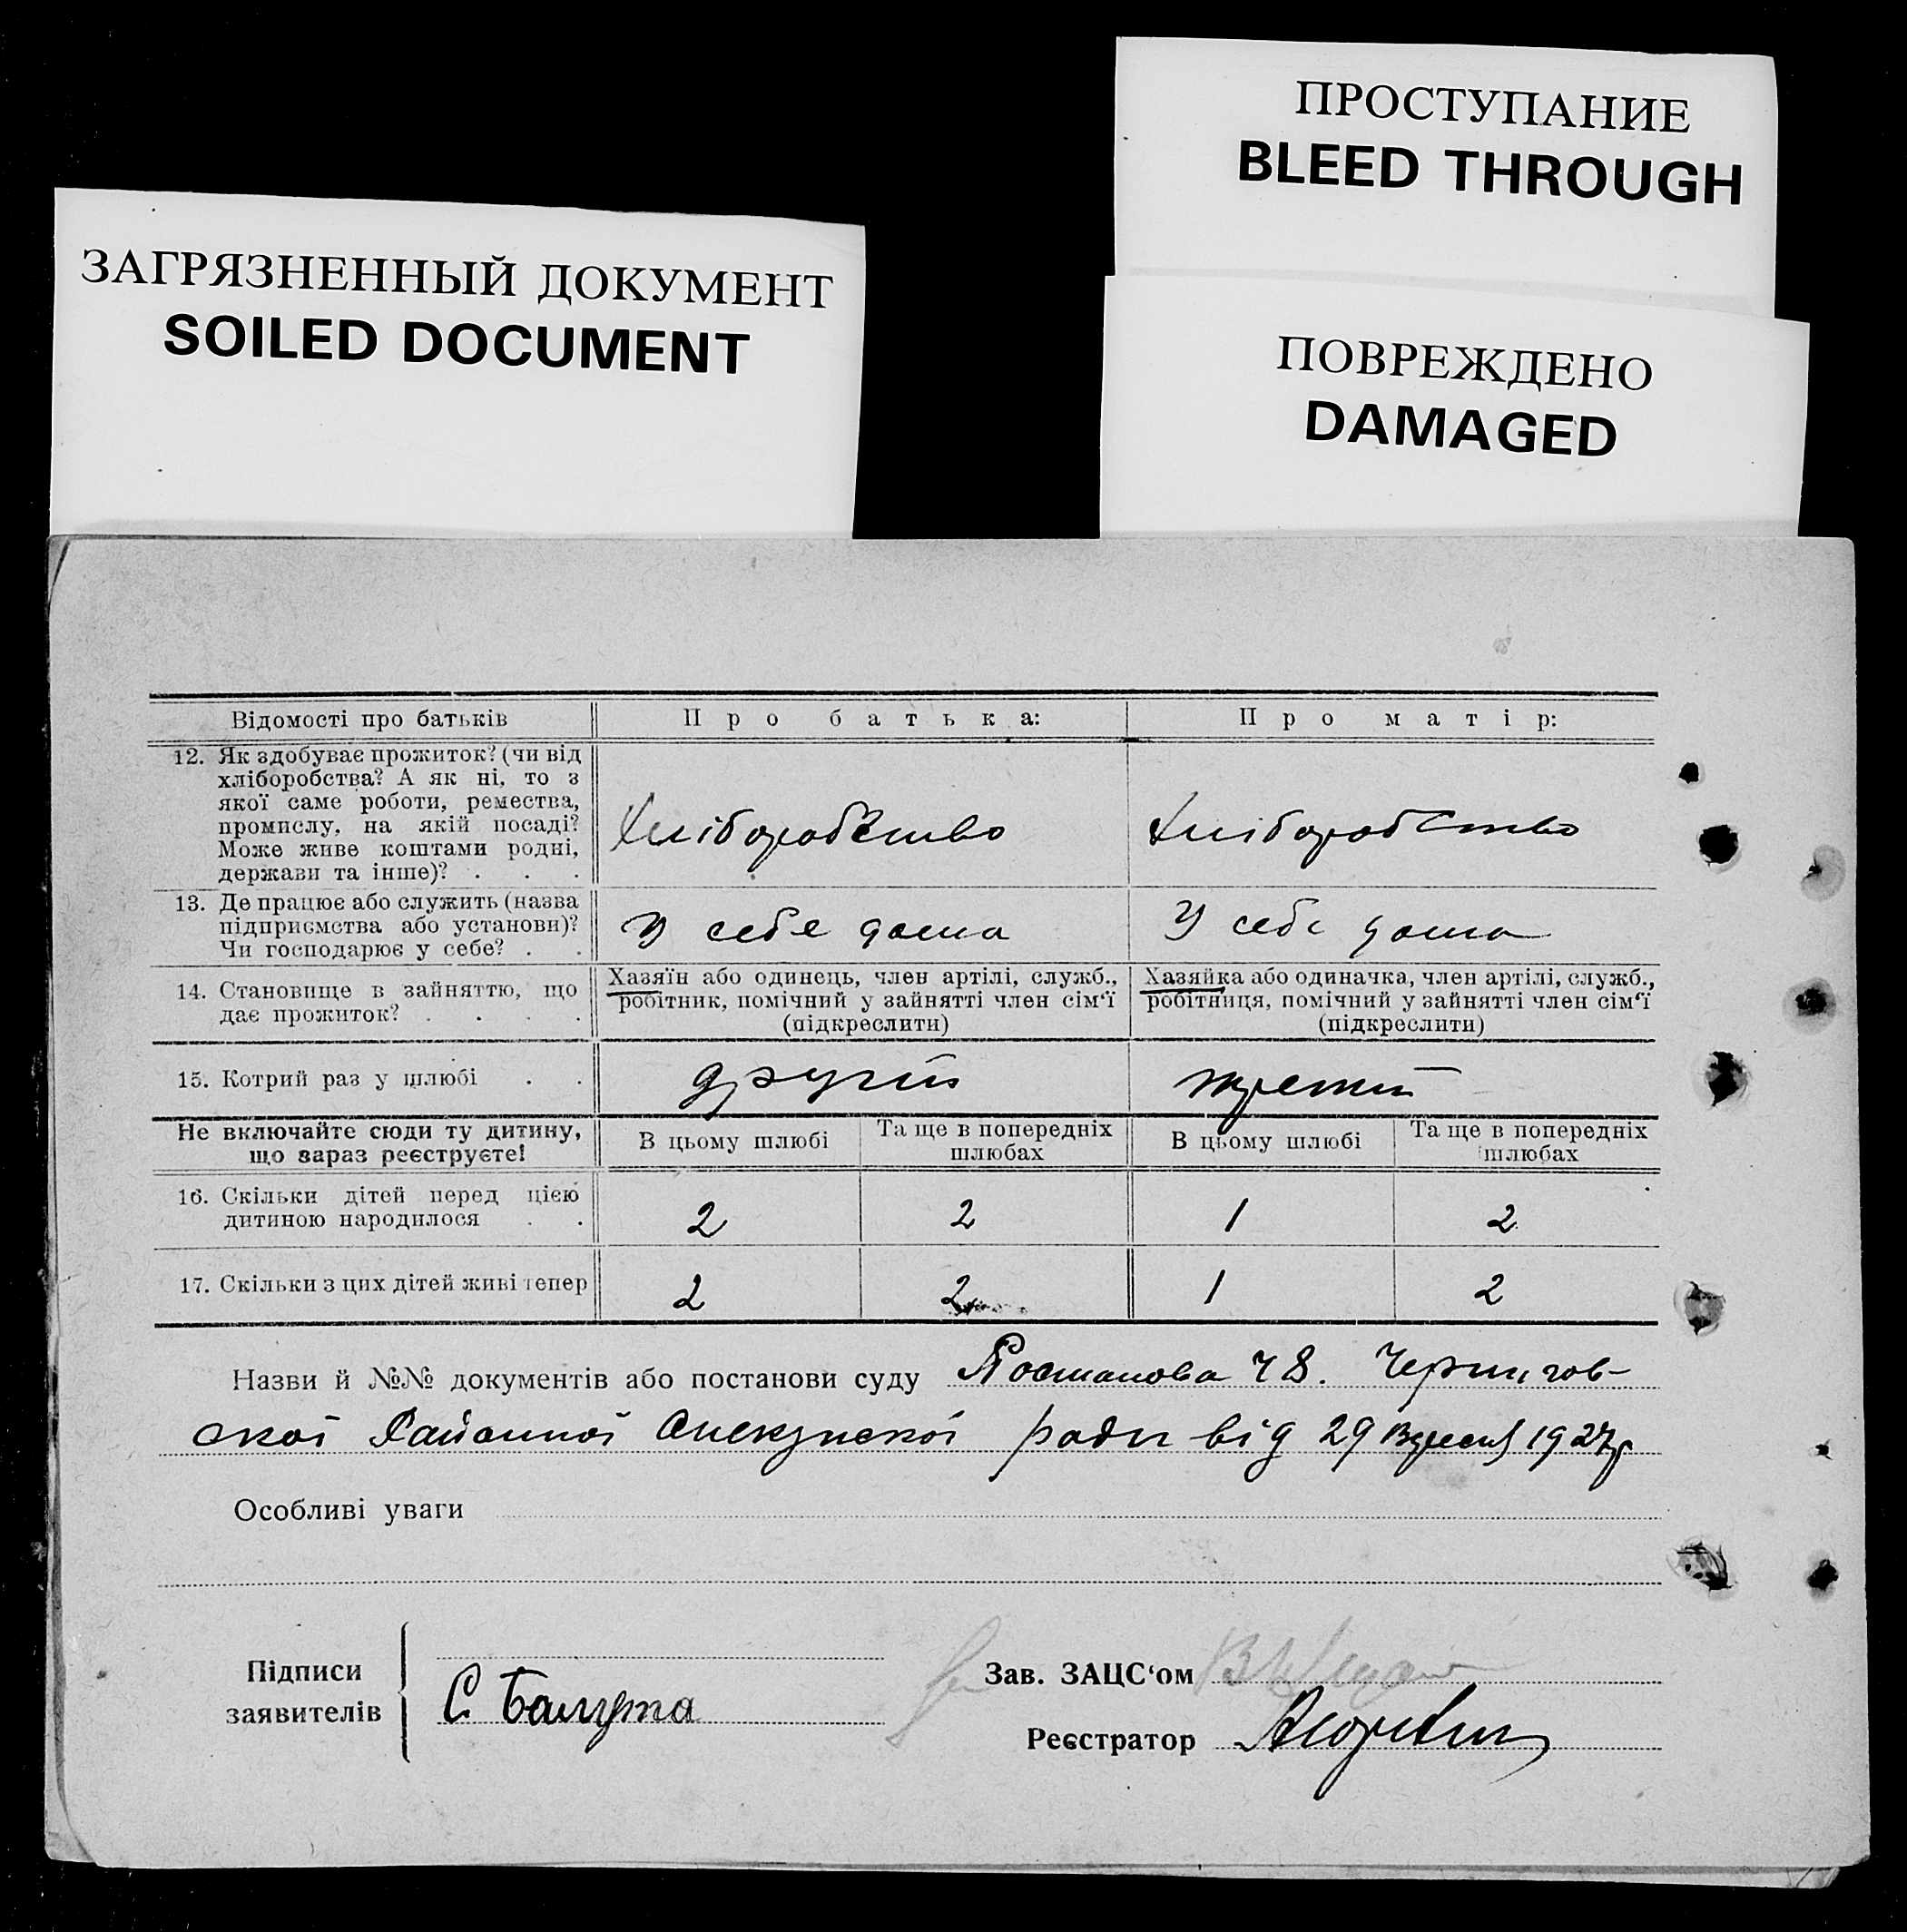 ПРОСТУПАНИЕ
BLEED THROUGH
ЗАГРЯЗНЕННЫЙ ДОКУМЕНТ
SOILED DOCUMENT
ПОВРЕЖДЕНО
DAMAGED
Відомості про батьків
Про батька:
Про матір:
12. Як здобуває прожиток? (чи від
хліборобства? А як ні, то з
якої саме роботи, ремества,
промислу, на якій посаді?
Може живе коштами родні,
держави та інше)? . . .
Хліборобство
Хліборобство
13. Де працює або служить (назва
підприємства або установи)?
Чи господарює у себе? . .
У себе дома
У себе дома
14. Становище в зайняттю, що
дає прожиток? . . . .
Хазяїн або одинець, член артілі, служб.,
робітник, помічний у зайнятті член сім'ї
(підкреслити)
Хазяйка або одиначка, член артілі, служб.,
робітниця, помічний у зайнятті член сім'ї
(підкреслити)
15. Котрий раз у шлюбі . .
другий
третий
Не включайте сюди ту дитину,
що зараз реєструєте!
В цьому шлюбі
Та ще в попередніх
шлюбах
В цьому шлюбі
Та ще в попередніх
шлюбах
16. Скільки дітей перед цією
дитиною народилося . .
2 2 1 2
17. Скільки з цих дітей живі тепер
2 2 1 2
Назви й №№ документів або постанови суду Постанова Ч 8. Чернигов-
ской Районної Опекунской ради від 29 Вересня 1927р
Особливі уваги
Підписи
заявителів
С. Балута
Зав. ЗАЦС'ом
Реєстратор